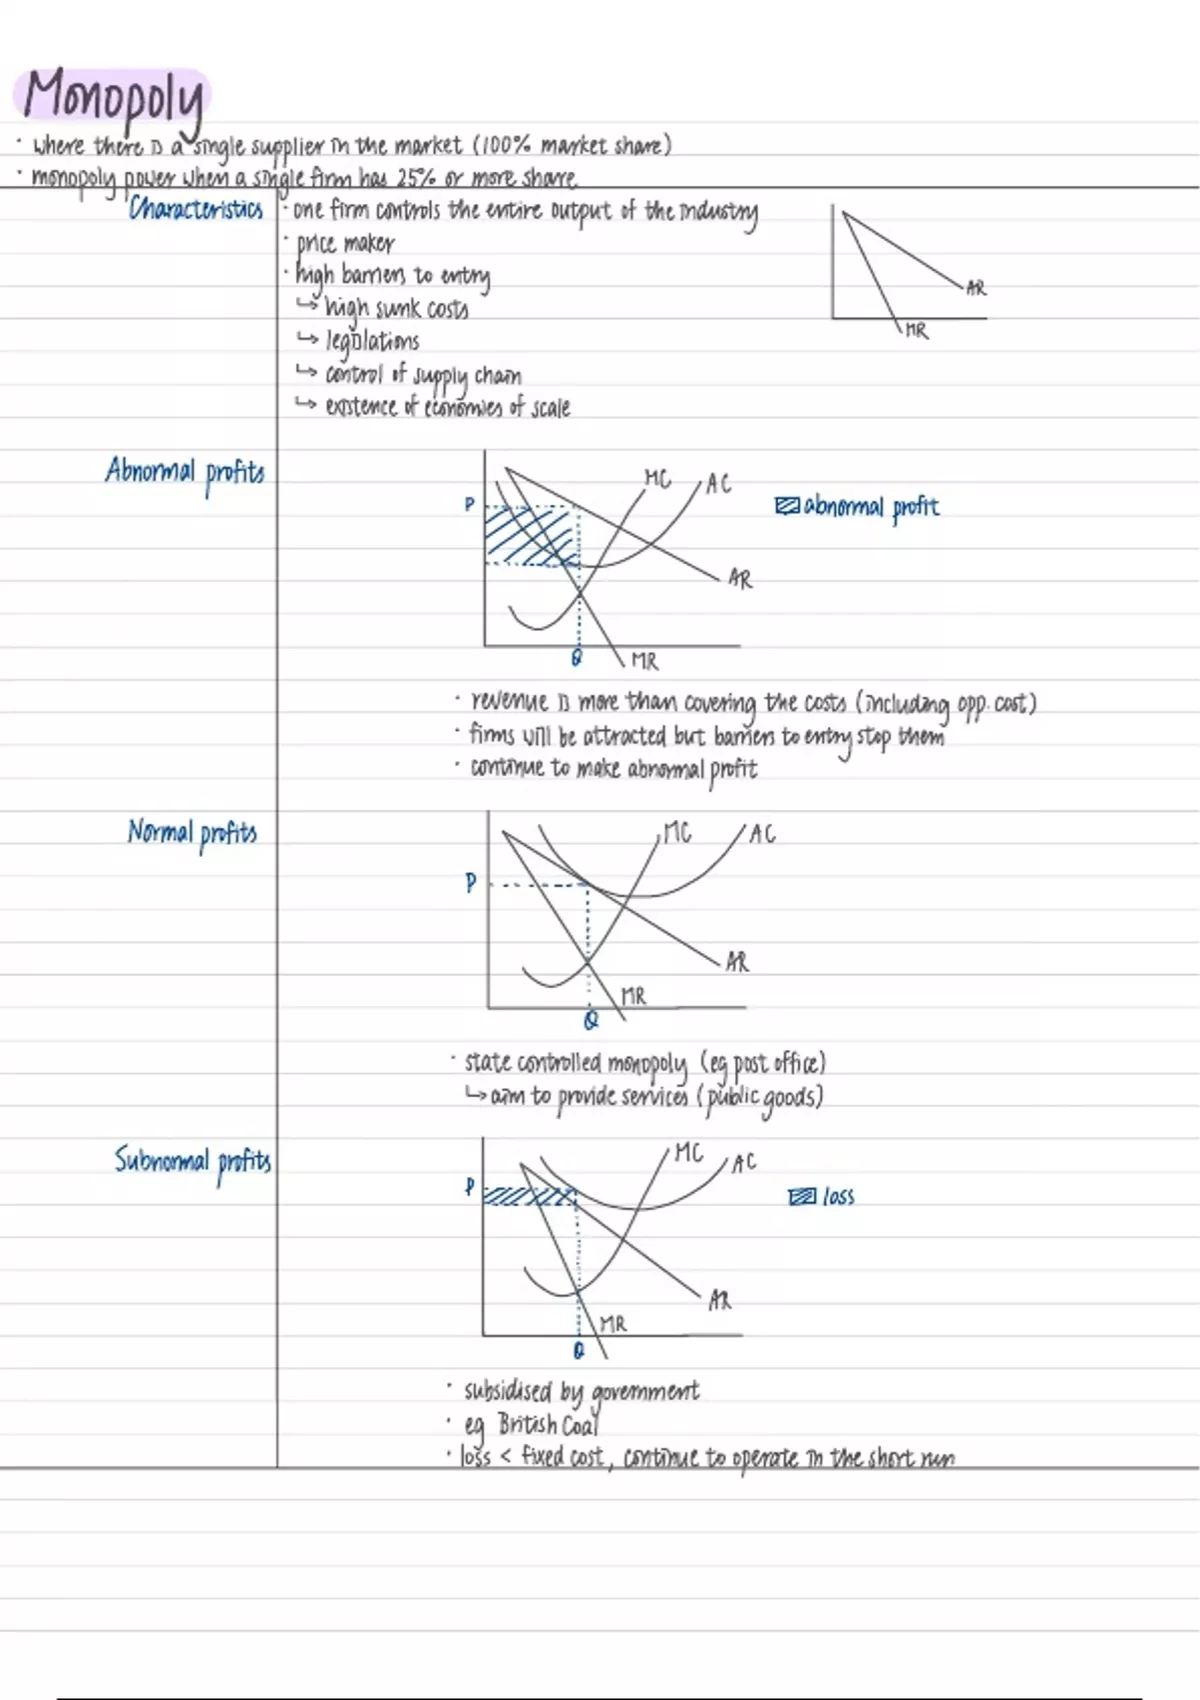 Monopoly
· where there is a single supplier in the market (100% market share)
· monopoly power when a single firm has 25% or more share
Characteristics
· one firm controls the entire output of the industry
· price maker
· high barriers to entry
↳ high sunk costs
↳ legislations
↳ control of supply chain
↳ existence of economies of scale
AR
MR
Abnormal profits
P
MC
AC
AR
MR
Q
abnormal profit
· revenue is more than covering the costs (including opp. cost)
· firms will be attracted but barriers to entry stop them
· continue to make abnormal profit
Normal profits
P
MC
AC
AR
MR
Q
· state controlled monopoly (eg post office)
↳ aim to provide services (public goods)
Subnormal profits
P
MC
AC
AR
MR
Q
loss
· subsidised by government
· eg British Coal
· loss < fixed cost, continue to operate in the short run